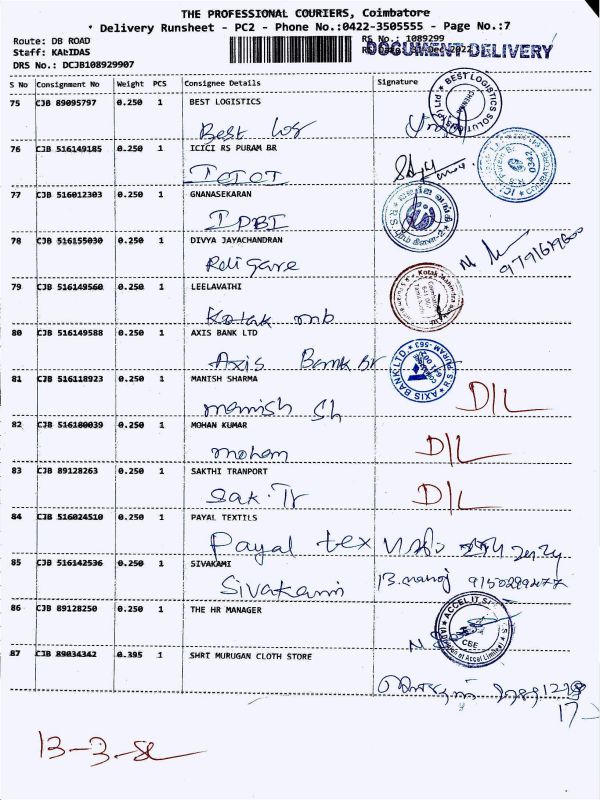 THE PROFESSIONAL COURIERS, Coimbatore
* Delivery Runsheet - PC2 - Phone No.:0422-3505555 - Page No.:7
Route: DB ROAD
RS No.: 1089299
Staff: KALIDAS
DOCUMENT DELIVERY
DRS No.: DCJB108929907
S No Consignment No Weight PCS Consignee Details Signature
75 CJB 89095797 0.250 1 BEST LOGISTICS
Best Log
BEST LOGISTICS SOLUT
76 CJB 516149185 0.250 1 ICICI RS PURAM BR
ICICI
77 CJB 516012303 0.250 1 GNANASEKARAN
IDBI
78 CJB 516155030 0.250 1 DIVYA JAYACHANDRAN
Religare
79 CJB 516149560 0.250 1 LEELAVATHI
Kotak mb
Kotak Mahindra
80 CJB 516149588 0.250 1 AXIS BANK LTD
Axis Bank Br
AXIS BANK LTD. R.S. PURAM
81 CJB 516118923 0.250 1 MANISH SHARMA
manish Sh D/L
82 CJB 516180039 0.250 1 MOHAN KUMAR
mohan D/L
83 CJB 89128263 0.250 1 SAKTHI TRANPORT
Sak. Tr D/L
84 CJB 516024510 0.250 1 PAYAL TEXTILS
Payal tex
85 CJB 516142536 0.250 1 SIVAKAMI
Sivakami B.manoj
86 CJB 89128250 0.250 1 THE HR MANAGER
ACCEL IT
CBE
87 CJB 89034342 0.395 1 SHRI MURUGAN CLOTH STORE
17-
13-3-